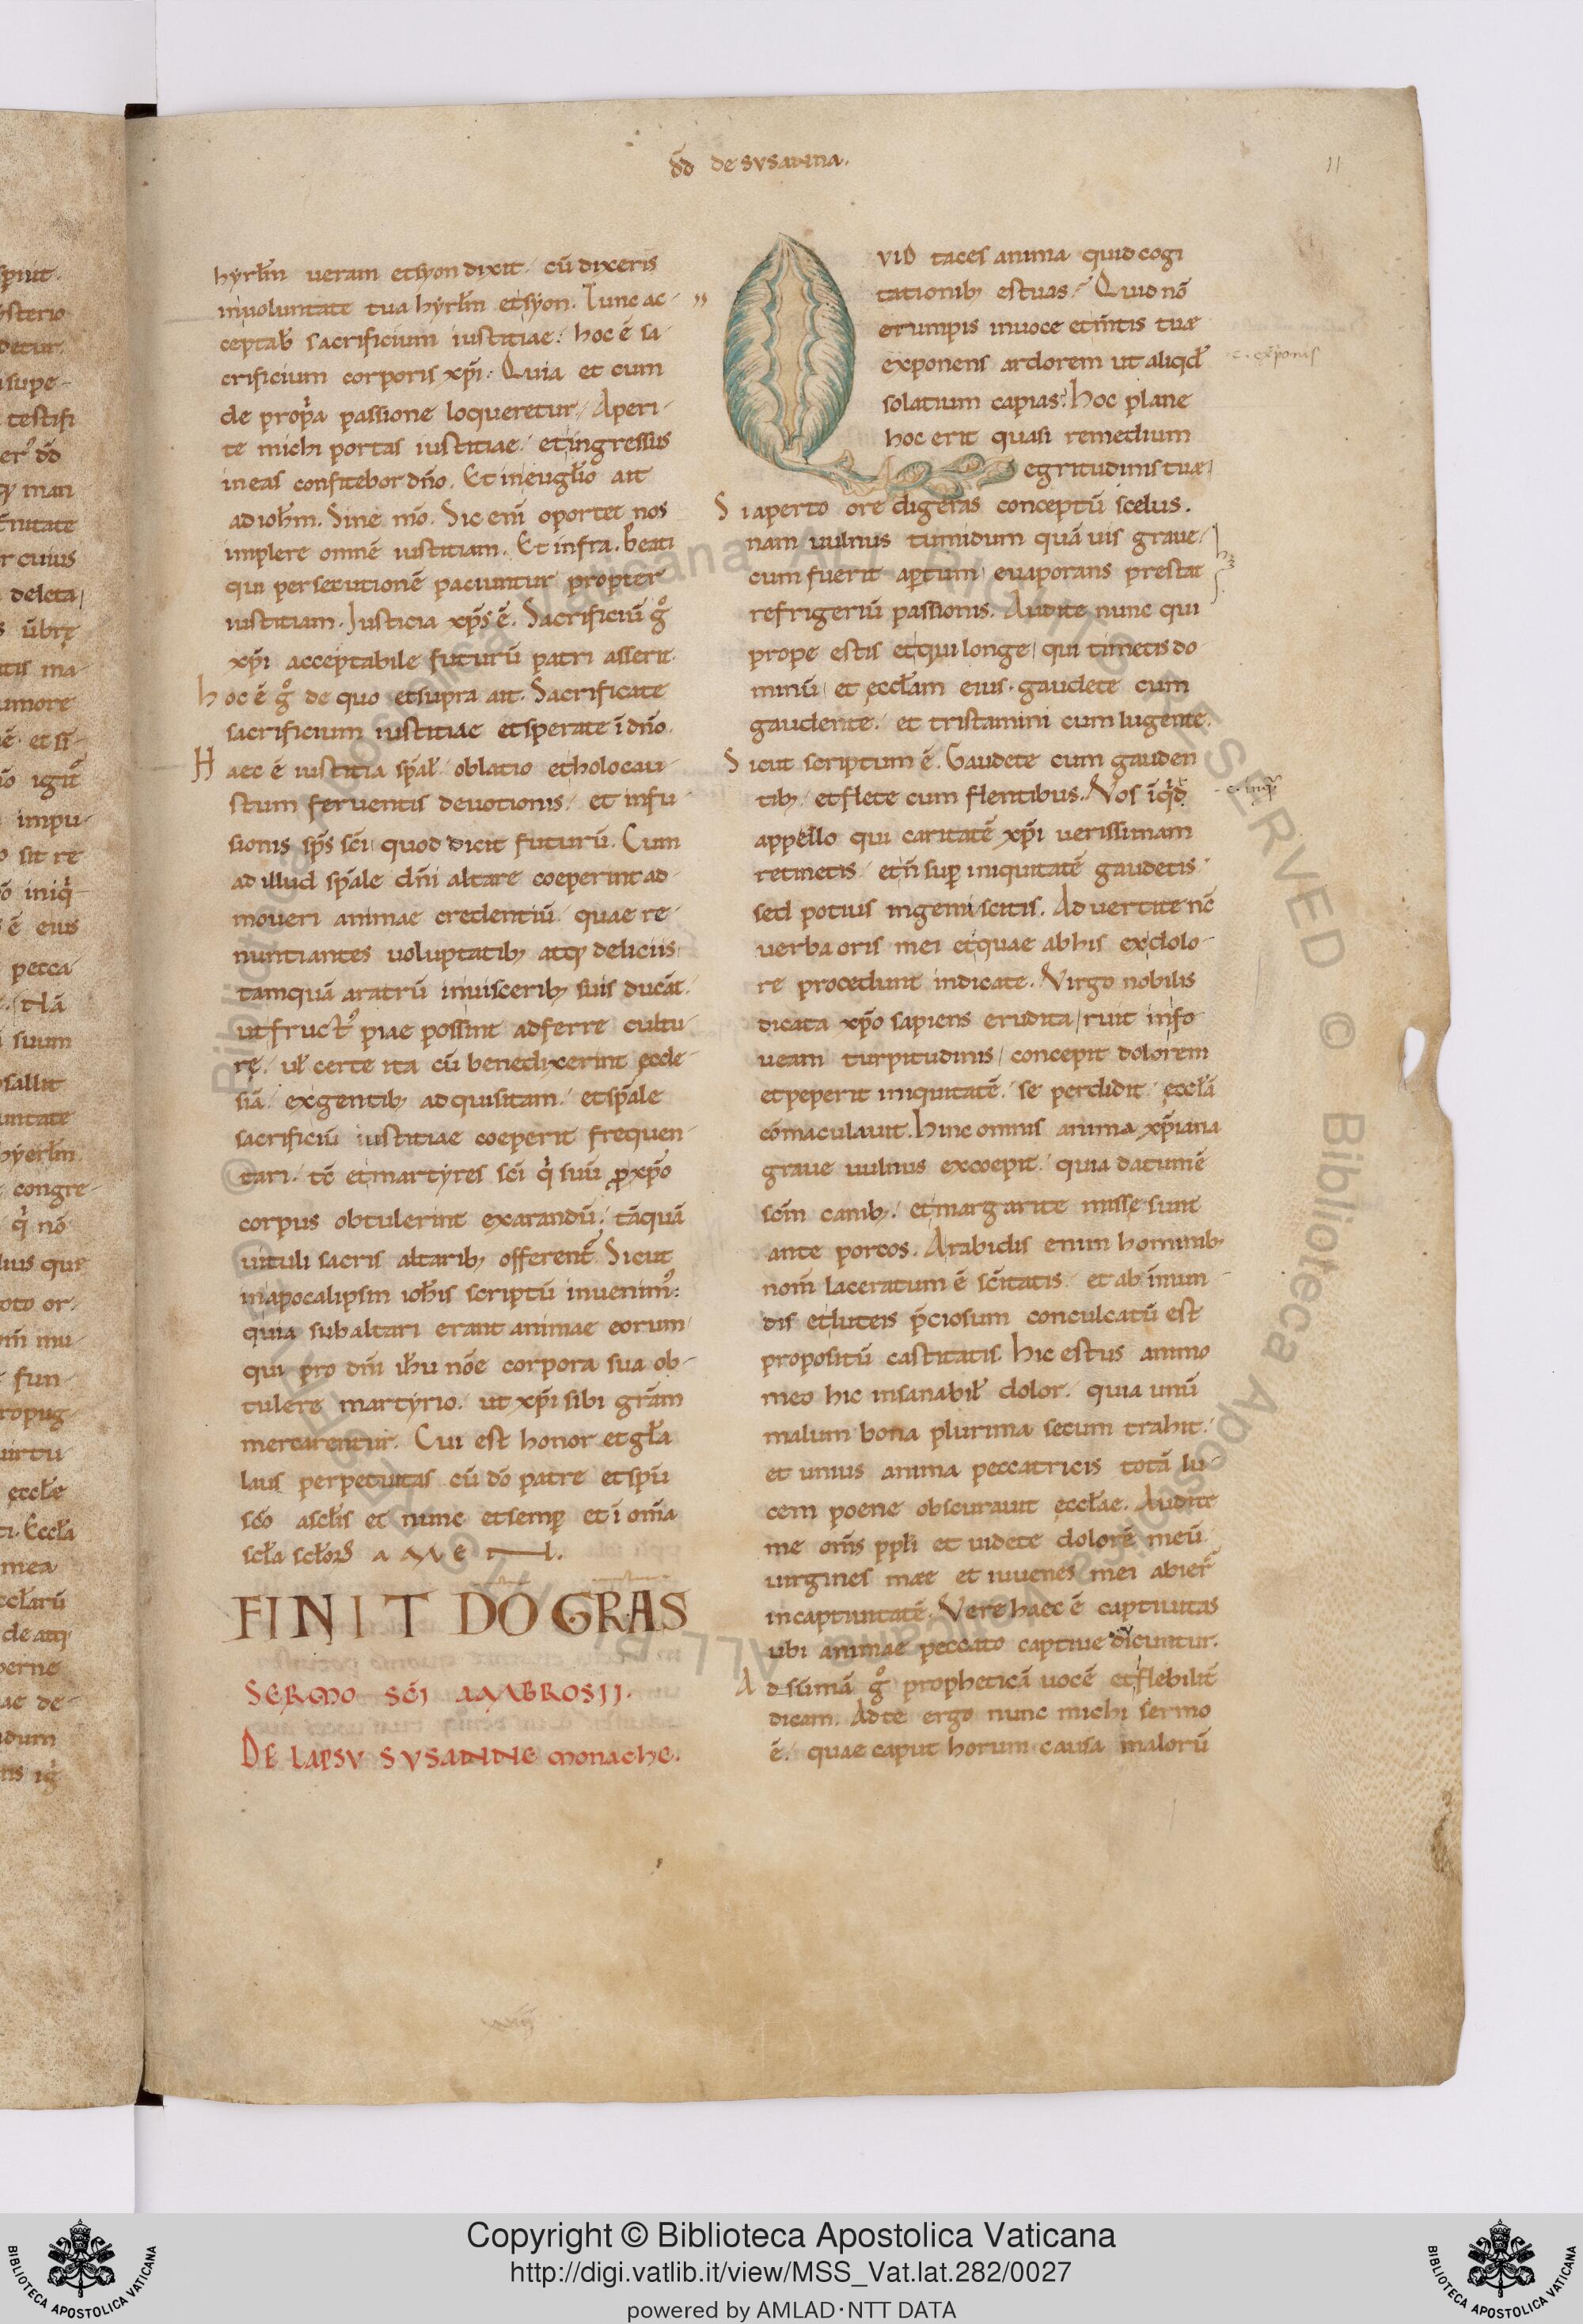 dd̄ de susanna.
11
hyrłm ueram et syon dixit. cū dixeris
in uoluntate tua hyrłm et syon. Tunc ac-
ceptab̄ sacrificium iustitiae. hoc ē sa-
crificium corporis xp̄i. Quia et cum
de propͥa passione loqueretur. Aperi-
te michi portas iustitiae. et ingressus
in eas confitebor dn̄o. Et in euglīo ait
ad ioħm. Sine m̄o. Sic enī oportet nos
implere omnē iustitiam. Et infra. beati
qui persecutionē paciuntur propter
iustitiam. Iusticia xp̄s ē. Sacrificiū gͦ
xp̄i acceptabile futurū patri asserit.
hoc ē gͦ de quo et supra ait. Sacrificate
sacrificium iustitiae et sperate ī dn̄o.
Haec ē iustitia sp̄al̄. oblatio et holocau-
stum feruentis deuotionis. et infu-
sionis sp̄s sc̄i quod dicit futurū. Cum
ad illud sp̄ale dn̄i altare coeperint ad-
moueri animae credentiū. quae re-
nuntiantes uoluptatib; atq; deliciis
tamquā aratrū in uisceribꝫ suis ducāt.
ut fructꝰ piae possint adferre cultu-
rę. ul̄ certe ita cū benedixerint eccle-
siā. ex gentibꝫ adquisitam. et sp̄ale
sacrificiū iustitiae coeperit frequen-
tari. tc̄ et martyres sc̄i qͥ suū ꝓ xp̄o
corpus obtulerint exarandū. tāquā
uituli sacris altaribꝫ offerent̄. Sicut
in apocalipsin ioħis scriptū inuenimꝰ:
quia sub altari erant animae eorum
qui pro dn̄i iħu nōe corpora sua ob-
tulere martyrio. ut xp̄i sibi grām
mercarentur. Cui est honor et gła
laus perpetuitas cū dō patre et spū
sc̄o a sełis et nunc et semꝑ et ī om̄a
seła sełorꝫ amen.
FINIT DO GRAS
SERMO SCI AMBROSII.
DE LAPSU SUSANNE monache.
QVID taces anima quid cogi
tationibꝫ estuas. Quid nō
erumpis in uoce et m̄tis tuę
exponens ardorem ut aliqd̄
c. exponis
solatium capias. hoc plane
hoc erit quasi remedium
egritudinis tuę.
Si aperto ore digeras conceptū scelus.
nam uulnus tumidum quāuis graue.
cum fuerit aꝑtum euaporans prestat
refrigeriū passionis. Audite nunc qui
prope estis et qui longe qui timetis do-
minū et eccłam eius. gaudete cum
gaudente. et tristamini cum lugente.
Sicut scriptum ē. Gaudete cum gauden
tibꝫ et flete cum flentibus. Vos īqͥd̄
c. inqͣ
appello qui caritatē xp̄i uerissimam
retinetis. et n̄ suꝑ iniquitatē gaudetis.
sed potius ingemiscitis. Aduertite nc̄
uerba oris mei et quae ab his ex dolo-
re procedunt indicate. Virgo nobilis
dicata xp̄o sapiens erudita ruit in fo
ueam turpitudinis. concepit dolorem
et peperit iniquitatē. se perdidit eccłā
cōmaculauit. hinc omnis anima xp̄iana
graue uulnus excoepit. quia datum ē
sc̄m canibꝫ. et margarite misse sunt
ante porcos. A rabidis enim hominibꝫ
nom̄ laceratum ē sc̄itatis. et ab inmun
dis et luteis p̄ciosum conculcatū est
propositū castitatis. hic estus animo
meo hic insanabił dolor. quia unū
malum bona plurima secum trahit.
et unius anima peccatricis totā lu-
cem poene obscurauit eccłae. Audite
me om̄s ppłi et uidete dolorē meū.
uirgines meę et iuuenes mei abier̄
in captiuitatē. Vere haec ē captiuitas
ubi animae peccato captiue dicuntur.
Adsūmā gͦ propheticā uocē et flebilit̄
dicam. Ad te ergo nunc michi sermo
ē. quae caput horum causa malorū
Copyright © Biblioteca Apostolica Vaticana
http://digi.vatlib.it/view/MSS_Vat.lat.282/0027
powered by AMLAD·NTT DATA
BIBLIOTECA APOSTOLICA VATICANA
BIBLIOTECA APOSTOLICA VATICANA